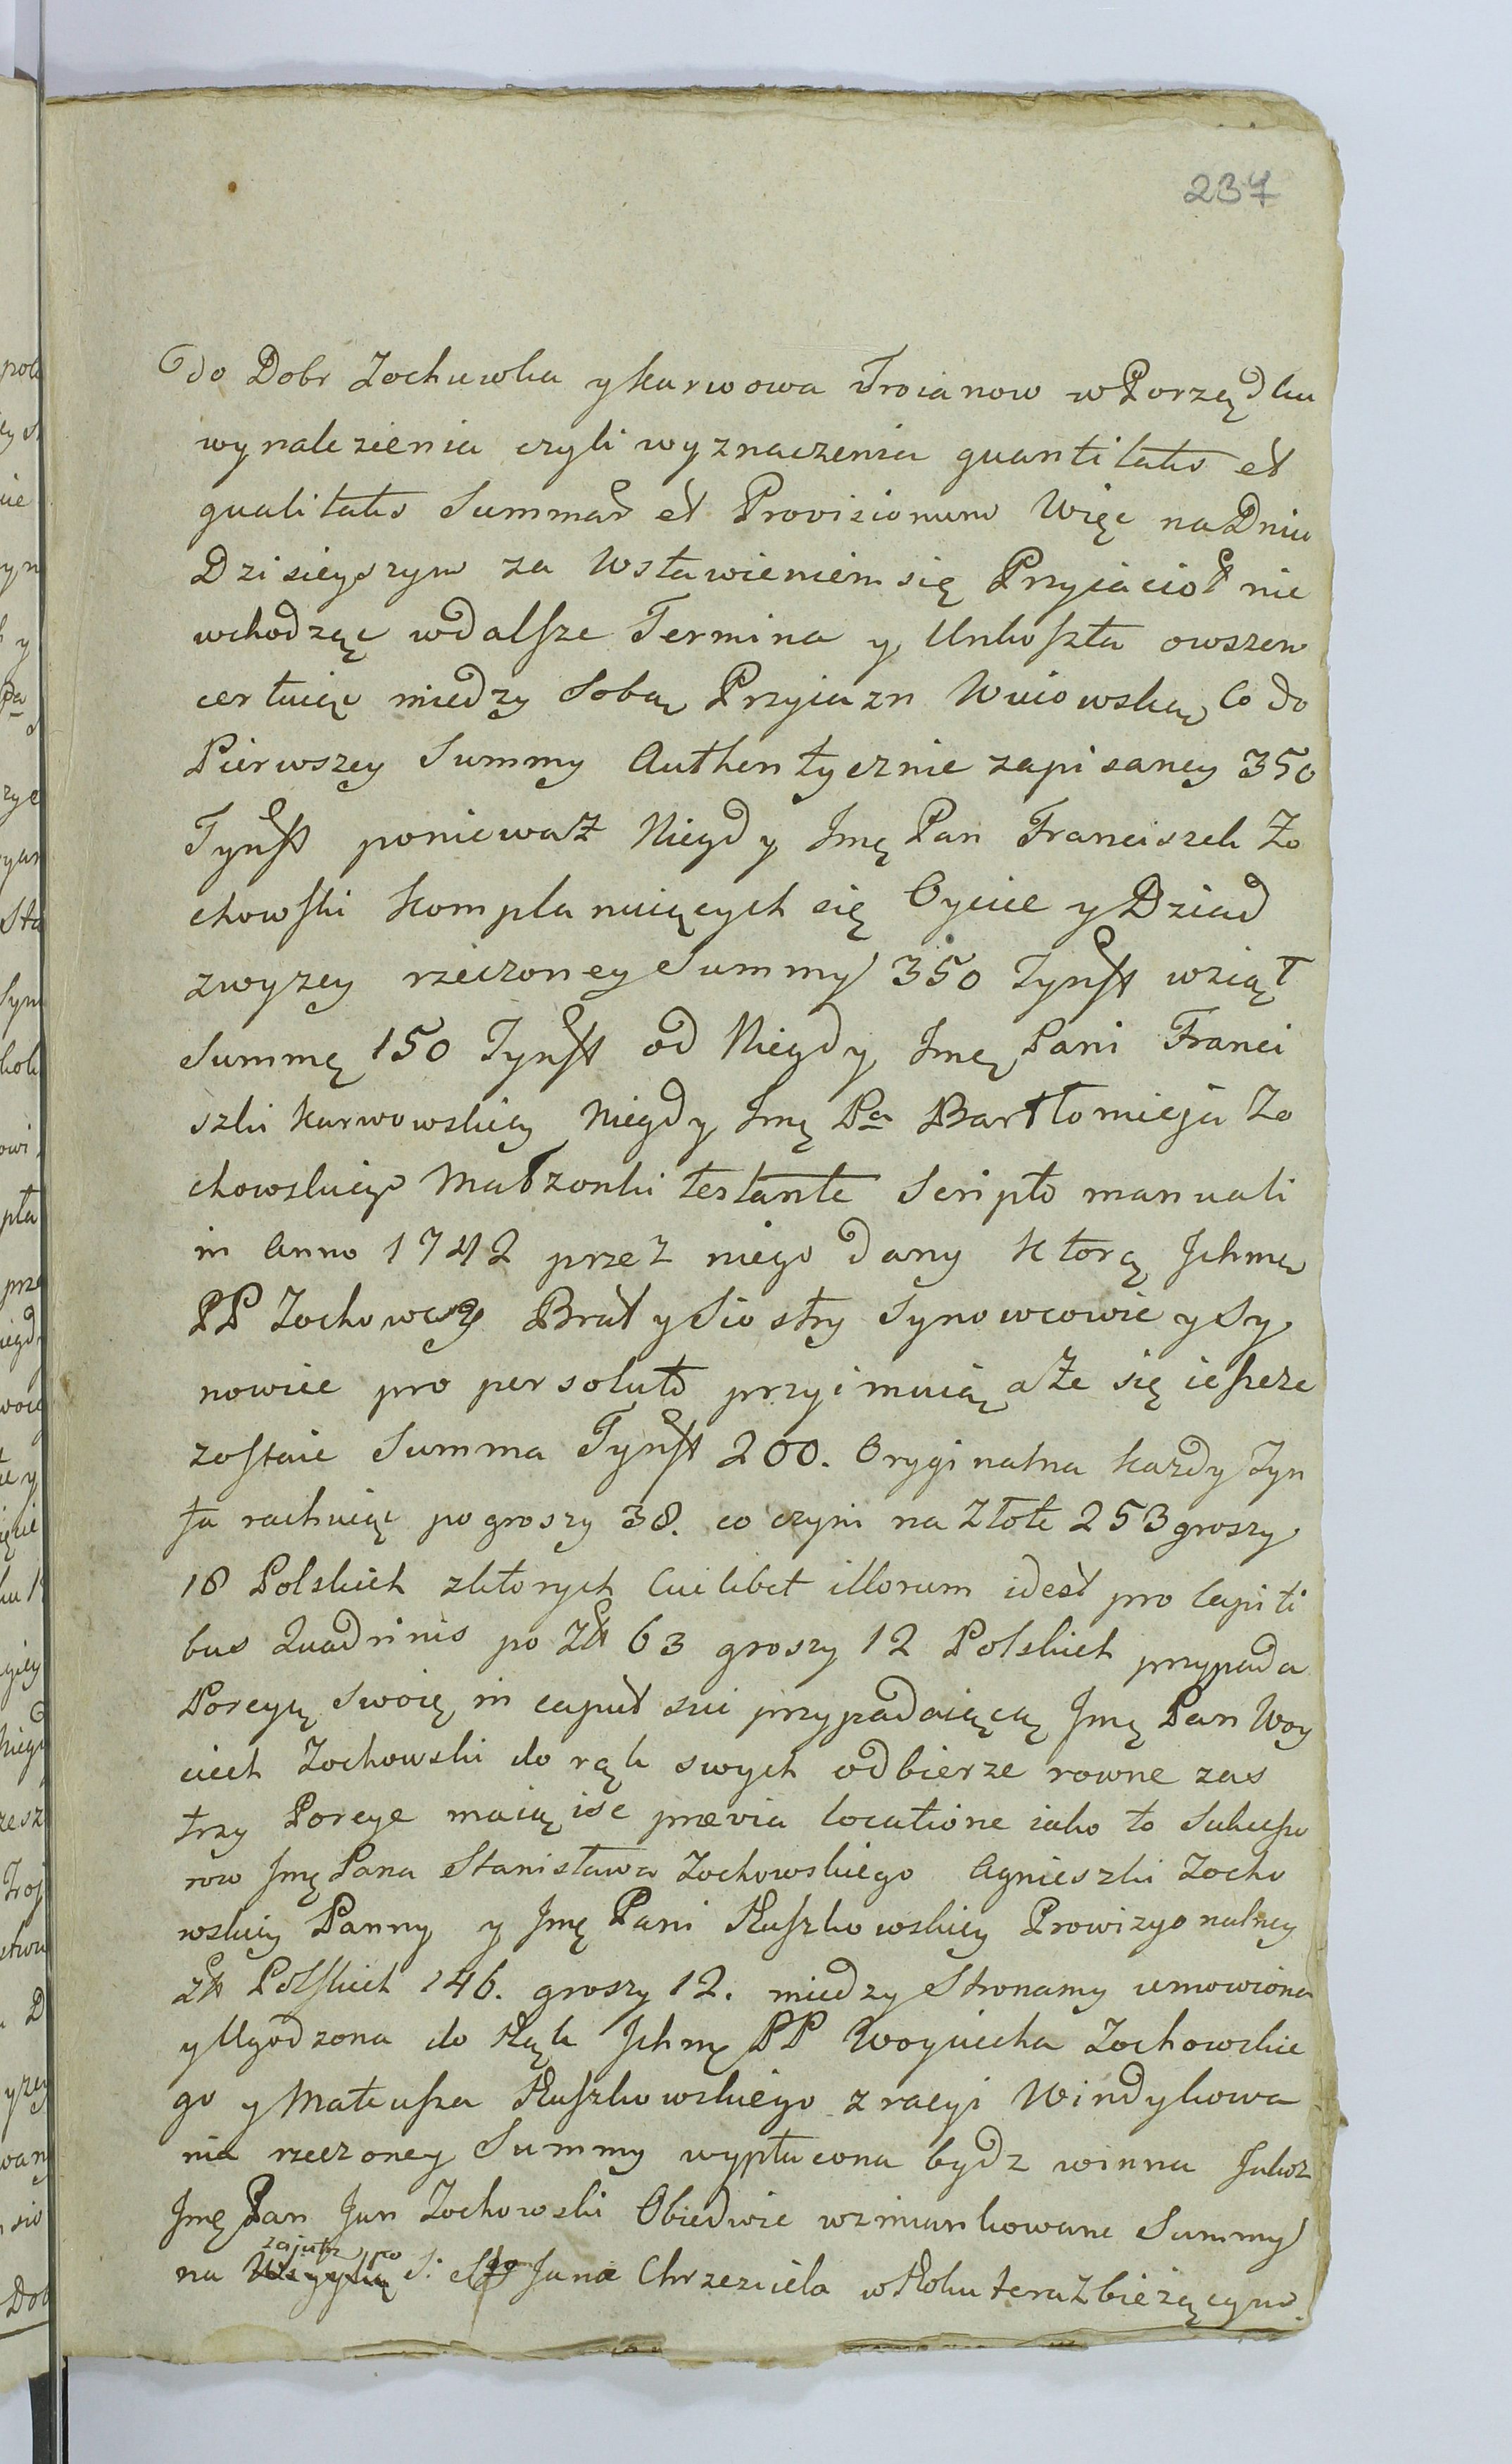 237
do Dobr Zochuwka y Karwowa Troianow w Porządku
wynalezienia czyli wyznaczenia quantitatis et
qualitatis Summar et Provisionum Więc na Dniu
Dzisieyszym za Wstawieniem się Przyiacioł nie
wchodząc w dalsze Termina y Unkoszta owszem
certuiąc miedzy Sobą Przyiazn Wuiowską Co do
Pierwszey Summy Authentycznie zapisaney 350
Tynff poniewasz Niegdy Jmę Pan Franciszek Zo
chowski Komplanuiących się Oyciec y Dziad
zwyzey rzeczoney Summy 350 Tynff wziął
Summę 150 Tynff od Niegdy Jmę Pani Franci
szki Karwowskiey Niegdy Jmę Pa Bartłomieja Zo
chowskiego Małzonki testante Scripto manuali
in Anno 1742 przez niego dany Ktorą Jchmę
PP Zochowscy Brat y Siostry Synowcowie y Sy
nowice pro persoluto przyimuią a Ze się ieszcze
zostaie Summa Tynff 200. Oryginalna kazdy Tyn
fa rachuiąc po groszy 38. co czyni na Złote 253 groszy
18 Polskich zktorych Cuilibet illorum idest pro Capiti
bus Quadrinis po Zł 63 groszy 12 Polskich przypada
Porcyą swoię in caput sui przypadaiącą Jmę Pan Woy
ciech Zochowski do rąk swych odbierze rowne zas
trzy Porcye maią isc prævia locatione iako to Sukcesso
row Jmę Pana Stanisława Zochowskiego Agnieszki Zocho
wskiey Panny y Jmę Pani Ruszkowskiey Prowizyonalney
Zł Polskich 146. groszy 12. miedzy Stronamy umowiona
y Ugodzona do Rąk Jchmę PP Woyciecha Zochowskie
go y Mateusza Ruszkowskiego z racyi Windykowa
nia rzeczoney Summy wypłacona bydz winna Jakoz
Jmę Pan Jan Zochowski Obiedwie wzmiankowane Summy
zajutrz po
na Wigylią S. Jana Chrzciciela w Roku teraz bieżącym